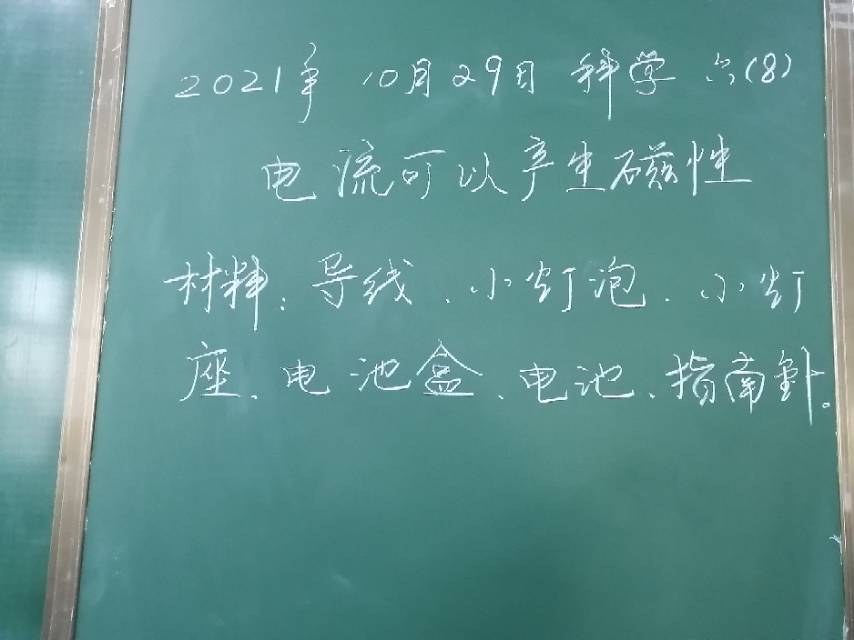 2021年 10月29日 科学 六(8)
电流可以产生磁性
材料：导线、小灯泡、小灯
座、电池盒、电池、指南針。